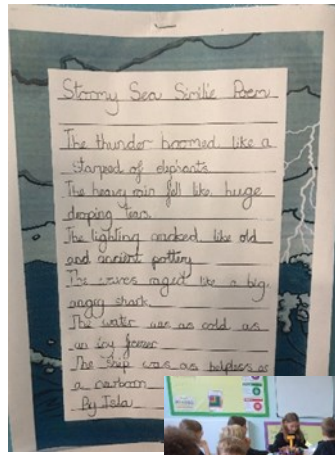 Stormy Sea Similie Poem
The thunder boomed like a
stanped of elephants
The heavy rain fell like huge
droping tears.
The lighting cracked like old
and ancient pottery
The waves raged like a big,
angry shark.
The water was as cold as
an icy
The ship was as helpless as
a newborn
By Isla